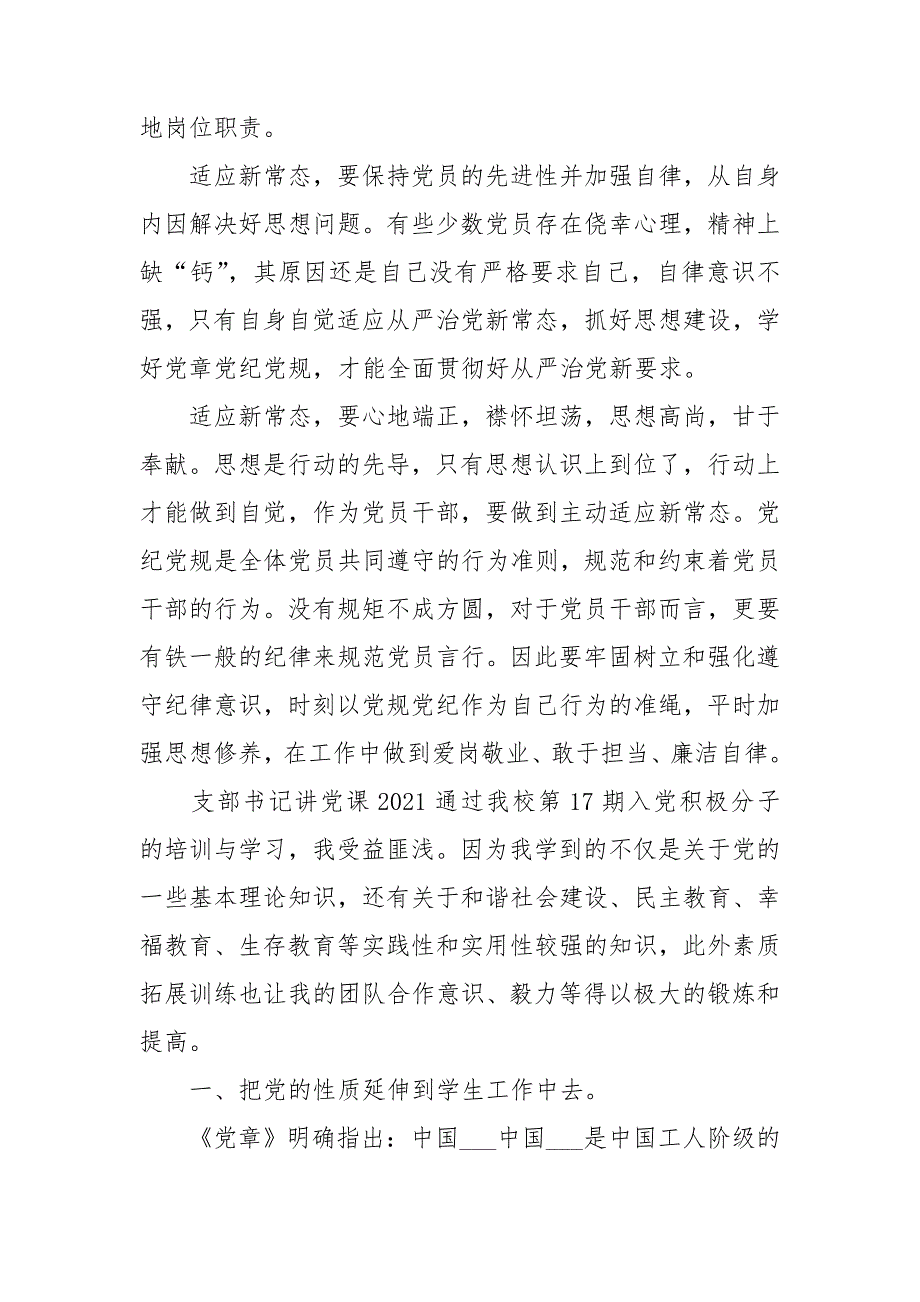 地岗位职责。
适应新常态，要保持党员的先进性并加强自律，从自身
内因解决好思想问题。有些少数党员存在侥幸心理，精神上
缺“钙”，其原因还是自己没有严格要求自己，自律意识不
强，只有自身自觉适应从严治党新常态，抓好思想建设，学
好党章党纪党规，才能全面贯彻好从严治党新要求。
适应新常态，要心地端正，襟怀坦荡，思想高尚，甘于
奉献。思想是行动的先导，只有思想认识上到位了，行动上
才能做到自觉，作为党员干部，要做到主动适应新常态。党
纪党规是全体党员共同遵守的行为准则，规范和约束着党员
干部的行为。没有规矩不成方圆，对于党员干部而言，更要
有铁一般的纪律来规范党员言行。因此要牢固树立和强化遵
守纪律意识，时刻以党规党纪作为自己行为的准绳，平时加
强思想修养，在工作中做到爱岗敬业、敢于担当、廉洁自律。
支部书记讲党课 2021 通过我校第 17 期入党积极分子
的培训与学习，我受益匪浅。因为我学到的不仅是关于党的
一些基本理论知识，还有关于和谐社会建设、民主教育、幸
福教育、生存教育等实践性和实用性较强的知识，此外素质
拓展训练也让我的团队合作意识、毅力等得以极大的锻炼和
提高。
一、把党的性质延伸到学生工作中去。
《党章》明确指出：中国___中国___是中国工人阶级的